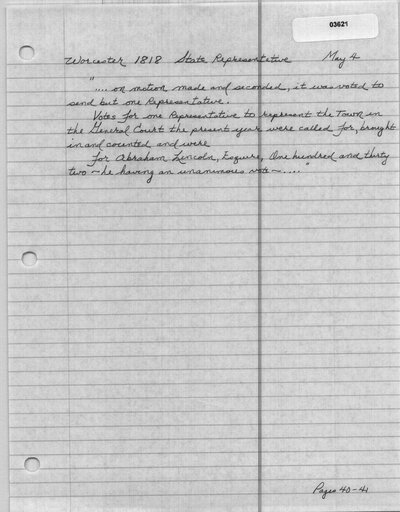 03621
Worcester 1818 State Representative May 4
"....on motion made and seconded, it was voted to
send but one Representative.
Votes for one Representative to represent the Town in
the General Court the present year were called for, brought
in and counted and were
For Abraham Lincoln, Esquire, One hundred and thirty
two ~ he having an unanimous vote ~...."
Pages 40-41